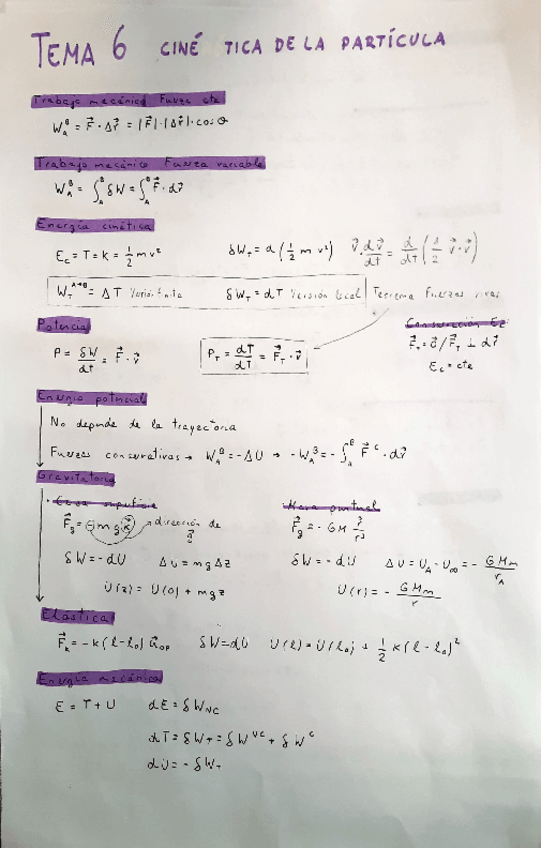 TEMA 6 CINÉ TICA DE LA PARTÍCULA
Trabajo mecánico Fuerza cte
W_A^B = F⃗ · Δr⃗ = |F⃗| · |Δr⃗| · cos θ
Trabajo mecánico Fuerza variable
W_A^B = ∫_A^B δW = ∫_A^B F⃗ · dr⃗
Energía cinética
E_c = T = K = 1/2 m v² δW_T = d (1/2 m v²) v⃗ · dv⃗/dt = d/dt (1/2 v⃗ · v⃗)
W_T^{A→B} = ΔT Versión finita δW_T = dT Versión local Teorema fuerzas vivas
Potencia
P = δW/dt = F⃗ · v⃗ P_T = dT/dt = F⃗_T · v⃗
Conservación Ec
F⃗_T = 0⃗ / F⃗_T ⊥ dr⃗
E_c = cte
Energía potencial
No depende de la trayectoria
Fuerzas conservativas → W_A^B = -ΔU → -W_A^B = -∫_A^B F⃗^C · dr⃗
Gravitatoria
F⃗_g = -mg k⃗ → dirección de g⃗
δW = -dU Δu = mgΔz
U(z) = U(0) + mgz
Masa puntual
F⃗_g = - GM r⃗/r³
δW = -dU Δu = U_A - U_∞ = - GMm/r_A
U(r) = - GMm/r
Elástica
F⃗_k = -k(l - l₀) u⃗_OP δW = dU U(l) = U(l₀) + 1/2 k(l - l₀)²
Energía mecánica
E = T + U dE = δW_NC
dT = δW_T = δW^NC + δW^C
dU = - δW_T